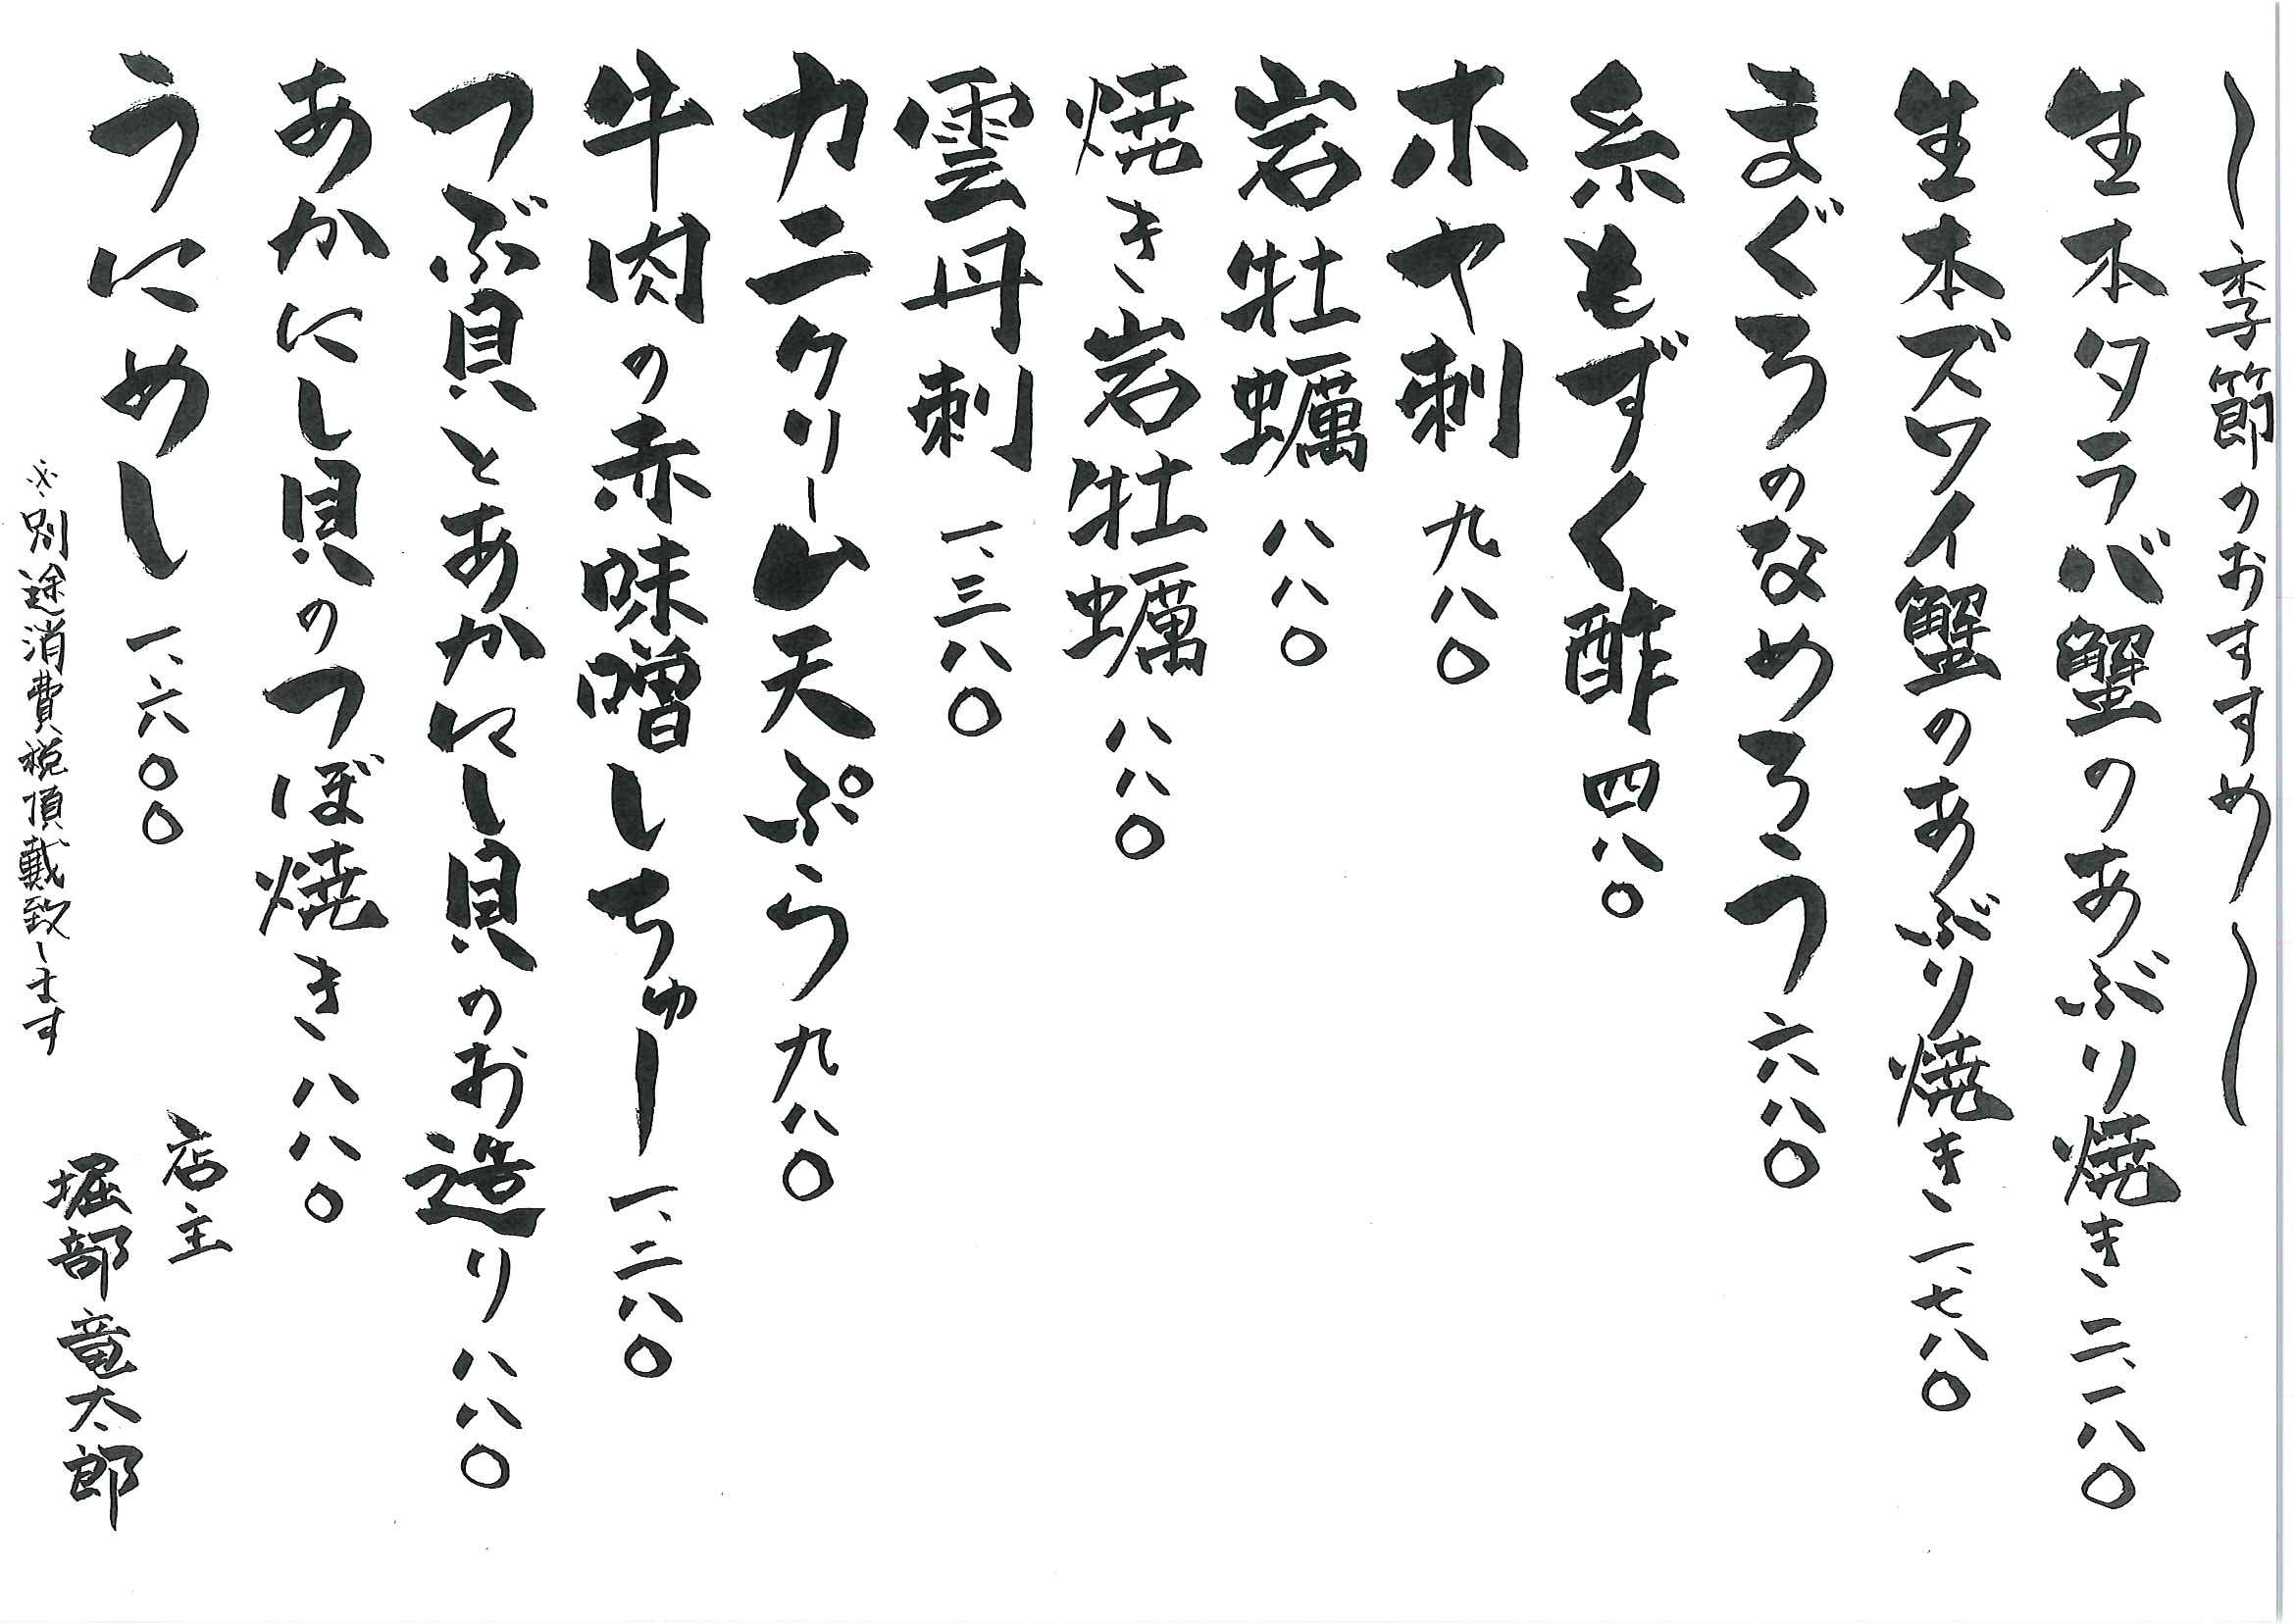 〜季節のおすすめ〜
生本タラバ蟹のあぶり焼き 二、一八〇
生本ズワイ蟹のあぶり焼き 一、七八〇
まぐろのなめろう 六八〇
糸もずく酢 四八〇
ホヤ刺 九八〇
岩牡蠣 八八〇
焼き岩牡蠣 八八〇
雲丹刺 一、三八〇
カニクリーム天ぷら 九八〇
牛肉の赤味噌しちゅー 一、二八〇
つぶ貝とあかにし貝のお造り 八八〇
あかにし貝のつぼ焼き 八八〇
うにめし 一、六〇〇
※別途消費税頂戴致します
店主
堀部竜太郎